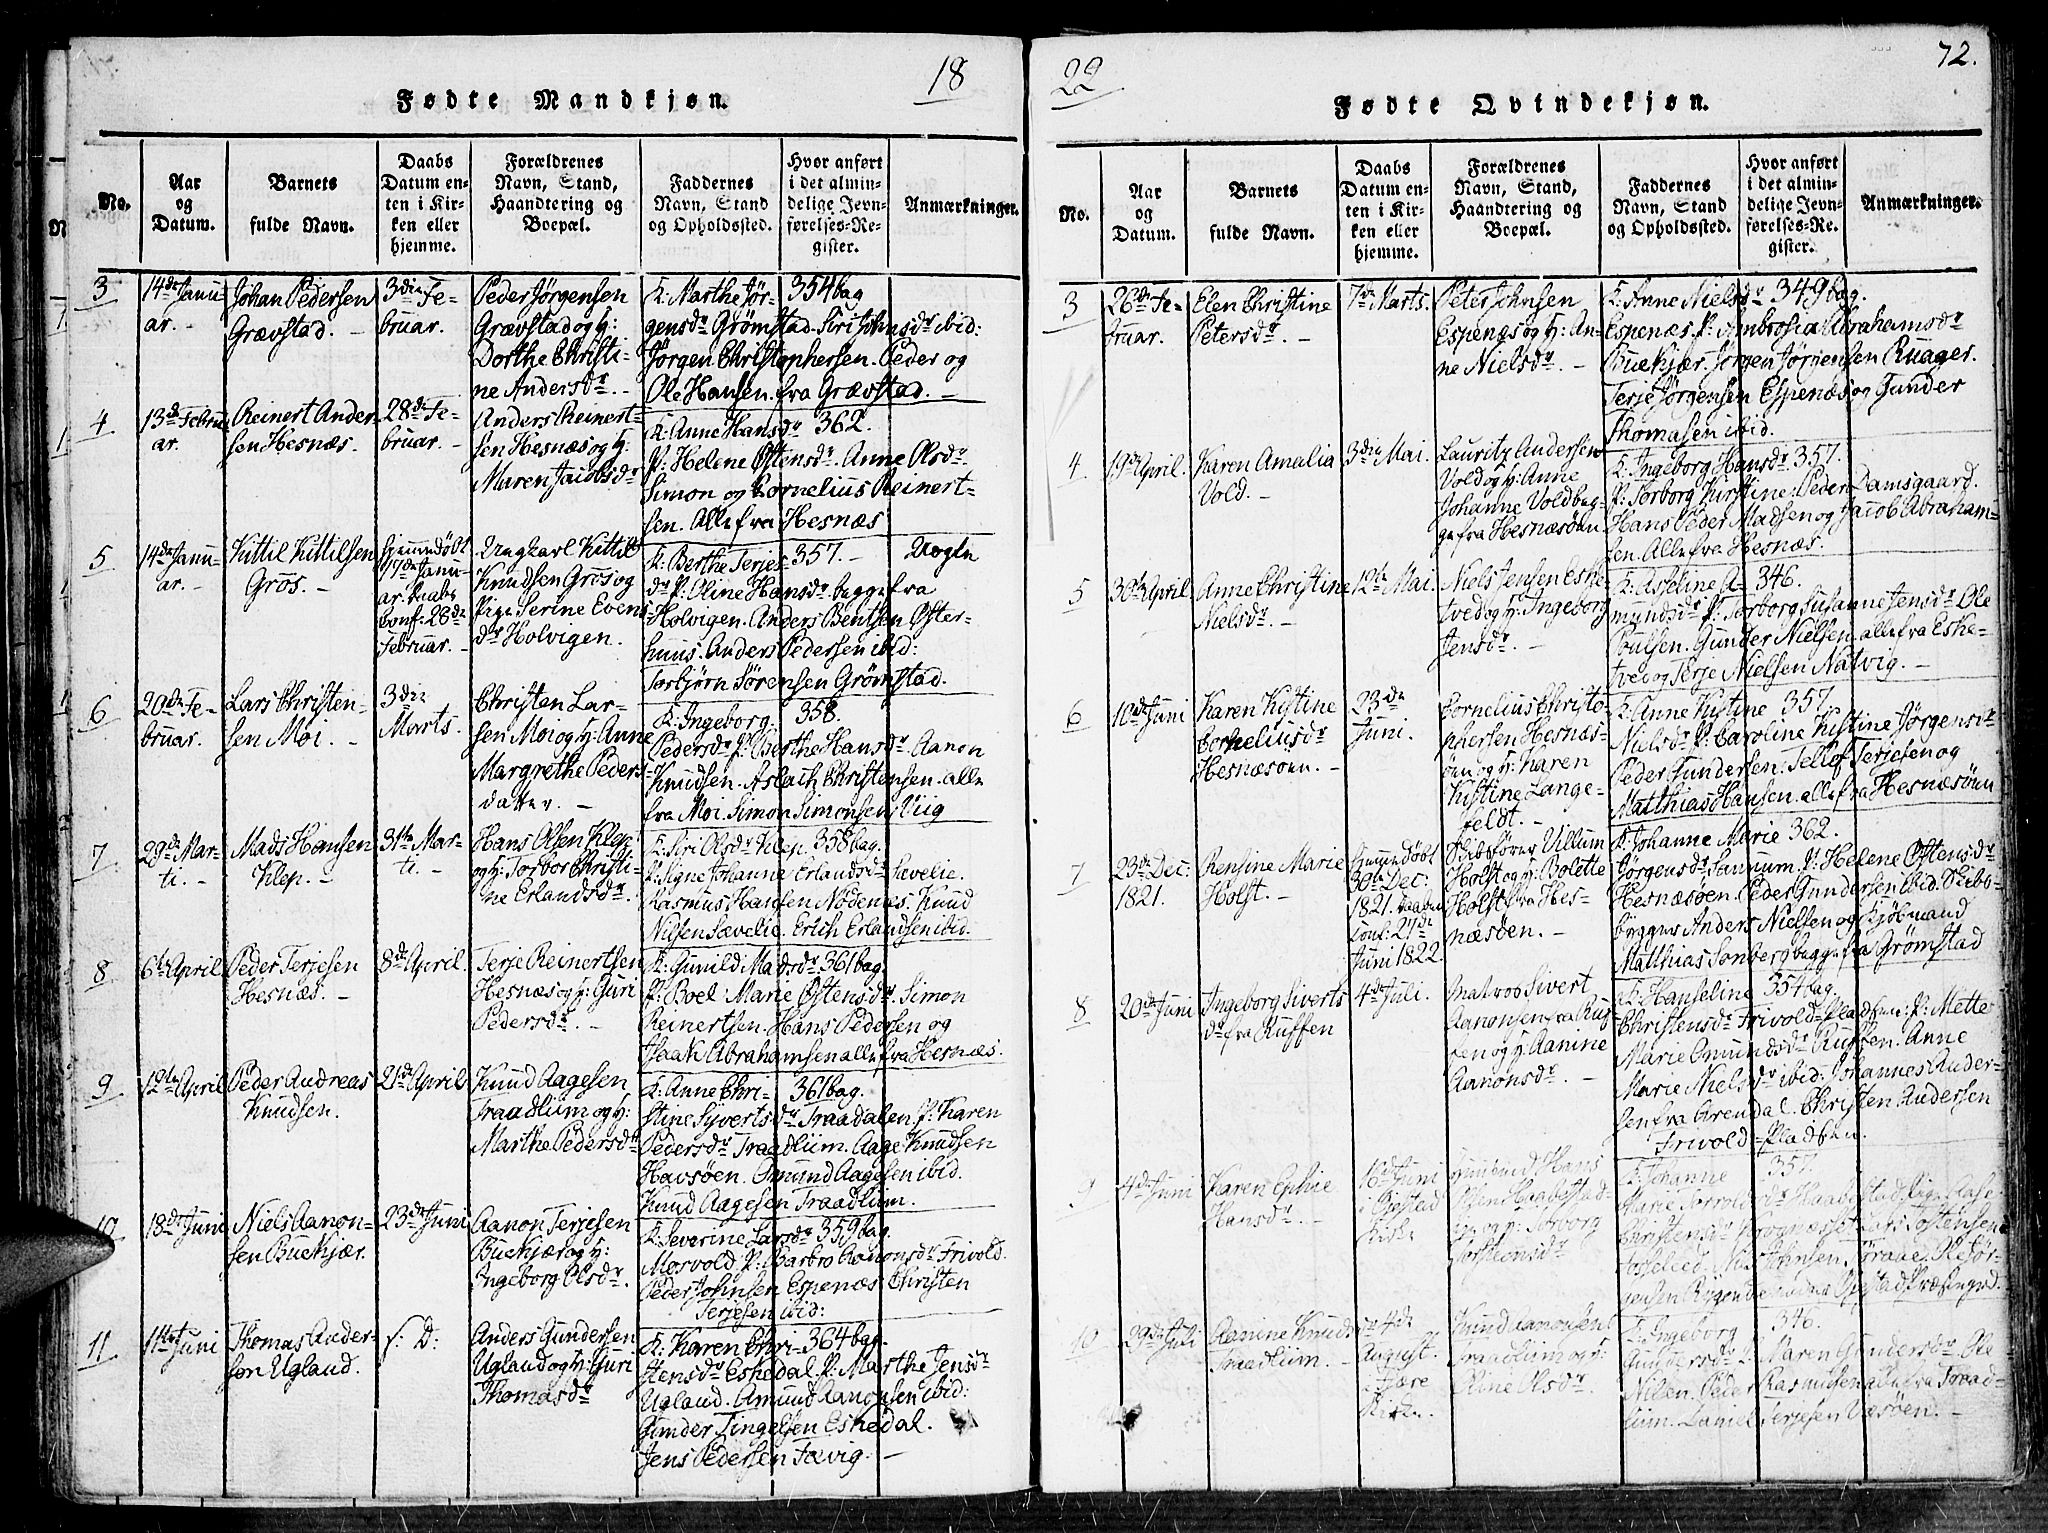 18
Fødte Mandkjøn.
No.
Aar
og
Datum.
Barnets
fulde Navn.
Daabs
Datum en-
ten i Kir-
ken eller
hjemme.
Forældrenes
Navn, Stand,
Haandtering og
Boepæl.
Faddernes
Navn, Stand
og Opholdssted.
Hvor anført
i det almin-
delige Jevn-
førelses-Re-
gister.
Anmærkninger.
3
14de Janu-
ar. -
Johan Pedersen
Grævstad. -
3die Fe-
bruar.
Peder Jørgensen
Grævstad og H:
Dorthe Christi-
ne Andersdr. -
K: Marthe Jør- 354 bag
gensdr Grømstad. Siri Johnsdr ibid:
Jørgen Christophersen. Peder og
Ole Hansen. fra Grævstad. -
4
13de Febru-
ar.
Reinert Ander-
sen Hesnæs.
28de Fe-
bruar. -
Anders Reinert-
sen Hesnæs og H:
Maren Jacobsdr
K: Anne Hansdr 362.
P: Helene Østensdr. Anne Olsdr
Simon og Cornelius Reinert-
sen. Alle fra Hesnæs
5
14de Janu-
ar. -
Kittil Kittilsen
Grøs. -
Hjemmedøbt
17de Janu-
ar. Daabs
Conf: 28de
Februar. -
Ungkarl Kittil
Knudsen Grøs og
Pige Serine Evens
dr Holvigen.
K: Berthe Terjes- 357. -
dr P: Oline Hansdr begge fra
Holvigen. Anders Bentsen Øster-
huus. Anders Pedersen ibid:
Torbjørn Sørensen Grømstad.
Uægte
6
20de Fe-
bruar.
Lars Christen-
sen Moi. -
3die
Marts.
Christen Lar-
sen Moi og H: Anne
Margrethe Peders-
datter. -
K: Ingeborg 358.
Pedersdr P: Berthe Hansdr. Aanon
Knudsen. Aslach Christensen. alle
fra Moi. Simon Simonsen Viig
7
29de Mar-
ti. -
Mads Hansen
Klep. -
31te Mar-
ti. -
Hans Olsen Klep
og H: Torbor Christi-
ne Erlandsdr.
K: Siri Olsdr Klep. 358 bag.
P: Signe Johanne Erlandsdr Sævelie.
Rasmus Hansen Nødenes. Knud
Nilsen Sævelie. Erich Erlandsen ibid.
8
6te April
Peder Terjesen
Hesnæs. -
8de April.
Terje Reinertsen
Hesnæs og H: Guri
Pedersdr. -
K: Gunild Madsdr 361 bag.
P: Boel Marie Østensdr. Simon
Reinertsen. Hans Pedersen og
Isaak Abrahamsen alle fra Hesnæs.
9
12te April
Peder Andreas
Knudsen.
21de April
Knud Aagesen
Traadlium og H:
Marthe Pedersdr
K: Anne Chri- 361 bag.
stine Syvertsdr Traadalen P: Karen
Pedersdr Traadlium. Aage Knudsen
Havsøen. Omund Aagesen ibid.
Knud Aagesen Traadlium.
10
18de Juni
Niels Aanon-
sen Buekjær.
23de Juni
Aanon Terjesen
Buekjær og H:
Ingeborg Olsdr.
K: Severine Larsdr 359 bag.
Mosvold P: Barbro Aanonsdr Frivold.
Peder Johnsen Espenæs Christen
Terjesen ibid:
11
11te Juni
Thomas Ander-
sen Ugland.
s: D:
Anders Gundersen
Ugland og H: Guri
Thomasdr
K: Karen Chri- 364 bag
stensdr Eshedal. P: Marthe Jensdr
Ugland. Amund Aanonsen ibid:
Gunder Tingelsen Eshedal.
Jens Pedersen Fævig. -
22
72.
Fødte Qvindekjøn.
No.
Aar
og
Datum.
Barnets
fulde Navn.
Daabs
Datum en-
ten i Kir-
ken eller
hjemme.
Forældrenes
Navn, Stand,
Haandtering og
Boepæl.
Faddernes
Navn, Stand
og Opholdssted.
Hvor anført
i det almin-
delige Jevn-
førelses-Re-
gister.
Anmærkninger.
3
26de Fe-
bruar.
Elen Christine
Petersdr. -
7de Marts.
Peter Johnsen
Espenæs og H: An-
ne Nielsdr. -
K: Anne Nielsdr 349 bag.
Espenæs. P: Ambrosia Abrahamsdr
Buekjær. Jørgen Jørgensen Ruager.
Terje Jørgensen Espenæs og Gunder
Thomasen ibid.
4
19de April.
Karen Amalia
Vold. -
3die Mai.
Lauritz Andersen
Vold og H: Anne
Johanne Vold beg-
ge fra Hesnæsøen
K: Ingeborg Hansdr 357.
P: Torborg Kirstine. Peder Damsgaard.
Hans Peder Madsen og Jacob Abraham-
sen. Alle fra Hesnæs.
5
30te April
Anne Christine
Nielsdr. -
12te Mai.
Niels Jensen Eshe-
tved og H: Ingeborg
Jensdr. -
K: Asseline A- 346.
mundsdr P: Torborg Susanne Jensdr Ole
Poulsen. Gunder Nielsen. alle fra Eshe-
tved og Terje Nielsen Natvig. -
6
10de Juni
Karen Kistine
Corneliusdr
Hesnæsøen. -
23de
Juni.
Cornelius Christo-
phersen Hesnæs-
øen og H: Karen
Kistine Lange-
feldt. -
K: Anne Kistine 357.
Nielsdr P: Caroline Kistine Jørgensdr
Peder Gundersen. Tellef Terjesen og
Matthias Hansen. alle fra Hesnæsøen
7
23de Dec:
1821.
Rensine Marie
Holst. -
Hjemmedøbt
30te Dec:
1821. Daabens
Conf: 27de
Juni 1822.
Skibsfører Villum
Holst og H: Bolette
Holst fra Hes-
næsøen. -
K: Johanne Marie 362.
Jørgensdr Sannum. P: Helene Østensdr
Hesnæsøen. Peder Gundersen ibid. Skibs-
bygger Anders Nielsen og Kjøbmand
Matthias Sonberg begge fra Grømstad
8
20de Juni
Ingeborg Siverts
dr fra Ruffen
4de Juli.
Matros Sivert
Aanonsen fra Ruf-
fen og H: Aanine
Aanonsdr. -
K: Hanseline 354 bag.
Christensdr Frivold-Pladsen: P: Mette
Marie Omundsdr Ruffen. Anne
Marie Nielsdr ibid: Johannes Ander-
sen fra Arendal. Christen Andersen
Frivold-Pladsen.
9
4de Juni
Karen Ephie
Hansdr. -
16de Juni
i Øiestad
Kirke
Huusmd Hans
Olsen Haabestad-
og H: Torborg
Torstensdr
K: Johanne 357.
Marie Torvoldsdr Haabestad. Pige Aase
Christensdr Lars Tostensen
Johnsen Ole Jør-
gensen
10
29de Juli
Aanine Knudsdr
Traadlium. -
4de
August.
i Fjære
Kirke.
Knud Aanonsen
Traadlium og H:
Oline Olsdr.
K: Ingeborg 346.
Gundersdr P: Maren Gundersdr Ole
Nilsen. Peder Rasmusen alle fra Traad-
lium. Daniel Terjesen Vessøen. -